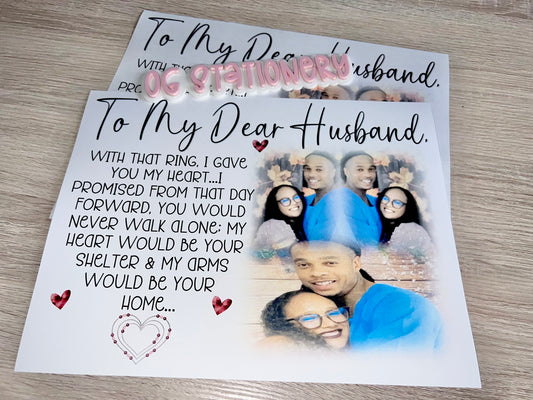 To My Dear Husband.
WITH THAT
PRO
OG Stationery
To My Dear Husband.
WITH THAT RING, I GAVE
YOU MY HEART...I
PROMISED FROM THAT DAY
FORWARD, YOU WOULD
NEVER WALK ALONE; MY
HEART WOULD BE YOUR
SHELTER & MY ARMS
WOULD BE YOUR
HOME...